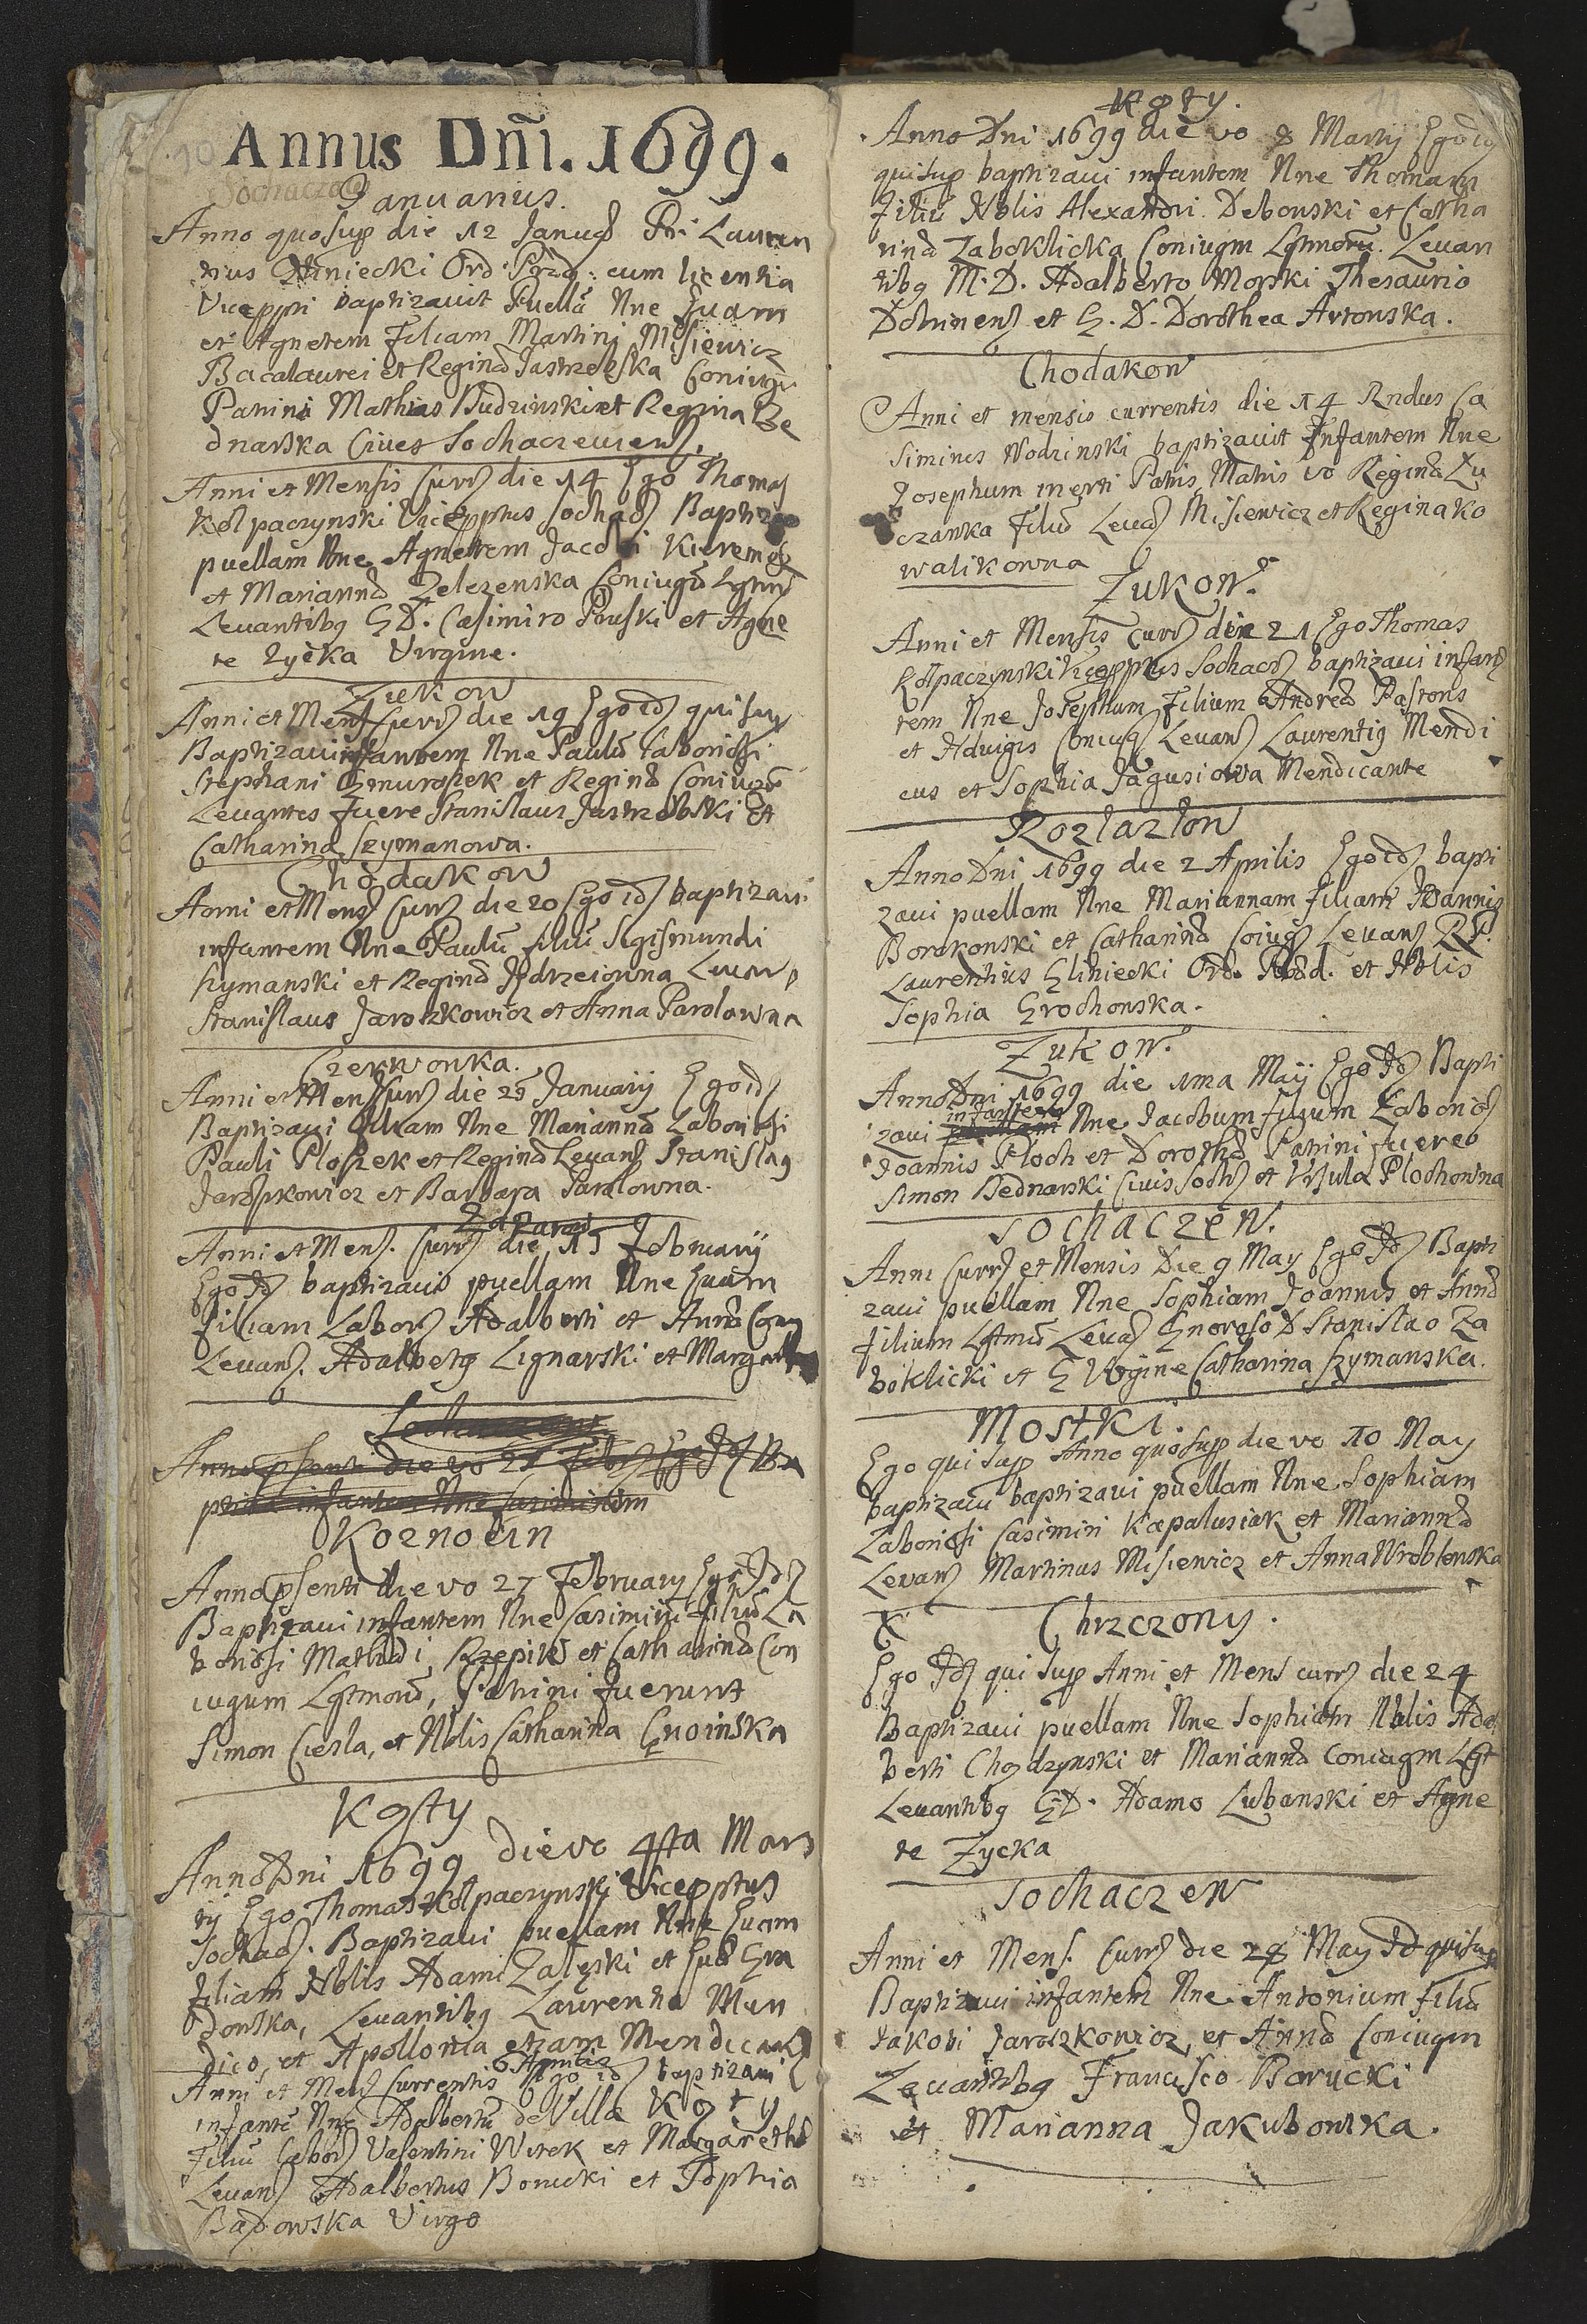 10
Annus Dñi. 1699.
Sochaczow
Januarius.
Anno quo sup die 12 Januar Pr Lauren
tius Gliniecki Ord: Præd: cum licentia
Viceppti baptizavit Puellā Nne Evam
et Agnetem Filiam Martini Misiewicz
Bacalaurei et Reginæ Jastrzebska Coniugū
Patrini Mathias Budzinski et Regina Be
dnarska Cives Sochaczewiens.
Anni et Mensis Curr die 14 Ego Thomas
Kolpaczynski Vicepptus Sochacz Baptiz
puellam Nne Agnetem Jacobi
et Mariannæ Zelezenska Coniugū Lgtmr
Levantibg G D. Casimiro Pruski et Agne
te Zycka Virgine.
Zukow
Anni et Mens Curr die 19 Ego id qui sup
Baptizavi infantem Nne Paulū Laboriosi
Stephani Gmurczek et Reginæ Coniugū
Levantes fuere Stanislaus Jastrzebski et
Catharina Szymanowa.
Chodakow
Anni et Mens Curr die 20 Ego id baptizavi
infantem Nne Paulū filiū Sigismundi
Szymanski et Reginæ Jedrzeiowna Levan
Stanislaus Jaroszkowicz et Anna Parolowna
Czerwonka.
Anni et Mens Curr die 25 January Ego id
Baptizavi filiam Nne Mariannā Laboriosi
Pauli Ploszek et Reginæ Levans Stanislaus
Jaroszkowicz et Barbara Parolowna.
Anni et Mens. Curr die 15 Februarij
Ego Id baptizavi puellam Nne Evam
filiam Labors Adalberti et Annæ Coniug
Levans. Adalbertg Lignarski et Margar
Sochaczow
Anno psenti die vo 21 Febr Ego Id Ba
ptizavi infantem Nne Casimirum
Koznocin
Anno psenti die vo 27 February Ego Id
Baptizavi infantem Nne Casimirū filiū La
boriosi Mathiæ Rzepik et Catharinæ Con
iugum Lgtmorū, Patrini fuerunt
Simon Ciesla, et Nblis Catharina Gnoinska
Kozty
Anno Dni 1699 die vo 4ta Mar
tij Ego Thomas Kolpaczynski Vicepptus
Sochacz. Baptizavi puellam Nne Evam
filiam Nblis Adami Zaleski et Evæ
dowska, Levantibg Laurentio Men
dico, et Apollonia etiam Mendican
6 Aprilis
Anni et Mens Currentis Ego id baptizavi
infantē Nne Adalbertū de Villa Kozty
Filiū Labors Valentini Witek et Margarethæ
Levans Adalbertus Borucki et Sophia
Badowska Virgo
11
Kozty.
Anno Dni 1699 die vo 8 Martij Ego id
qui sup baptizavi infantem Nne Thomam
filiū Nblis Alexandri Debowski et Catha
rinæ Zaboklicka Coniugm Lgtmorū. Levan
tibg M. D. Adalberto Morski Thesaurio
et G. D. Dorothea Artowska.
Chodakow
Anni et mensis currentis die 14 Rndus Ca
simirus Wodzinski baptizavit Infantem Nne
Josephum incerti Patris, Matris vo Reginæ Zu
czanka Filiū Levas Misiewicz et Regina Ko
walikowna
Zukow.
Anni et Mensis Curr die 21 Ego Thomas
Kolpaczynski Vicepptus Sochacz baptizavi infan
tem Nne Josephum Filium Andreæ Pastoris
et Hdvigis Coniug Levans Laurentig Mendi
cus et Sophia Jagusiowa Mendicante
Rozlazlow
Anno Dni 1699 die 2 Aprilis Ego id bapti
zavi puellam Nne Mariannam filiam Joannis
Borakowski et Catharinæ Coiug Levans R P.
Laurentius Gliniecki Ord. Præd. et Nblis
Sophia Grochowska.
Zukow.
Anno Dni 1699 die 1ma Maij Ego Id Bapti
zavi infantem Nne Jacobum filium Laborios
Joannis Ploch et Dorothæ Patrini fuere
Simon Bednarski Civis Soch et Ursula Plochowna
Sochaczew.
Anni Curr et Mensis Die 9 May Ego Id Bapti
zavi puellam Nne Sophiam Joannis et Annæ
filium Lgtmū Levas Gneroso D Stanislao Za
boklicki et G Virgine Catharina Szymanska.
Mostki.
Ego qui sup Anno quo sup die vo 10 May
baptizavi baptizavi puellam Nne Sophiam
Laboriosi Casimiri Kapalusiak et Mariannæ
Levans Martinus Misiewicz et Anna Wroblewska
X Chrzczony.
Ego Id qui sup Anni et Mens curr die 24
Baptizavi puellam Nne Sophiam Nblis Adal
berti Chodzynski et Mariannæ Coniugm Lgt
Levantibg G D. Adamo Lubanski et Agne
te Zycka
Sochaczew
Anni et Mens. Curr die 28 May Id qui sup
Baptizavi infantem Nne Antonium filiū
Jakobi Jaroszkowicz, et Annæ Coniugm
Levantibg Francisco Borucki
et Marianna Jakubowska.